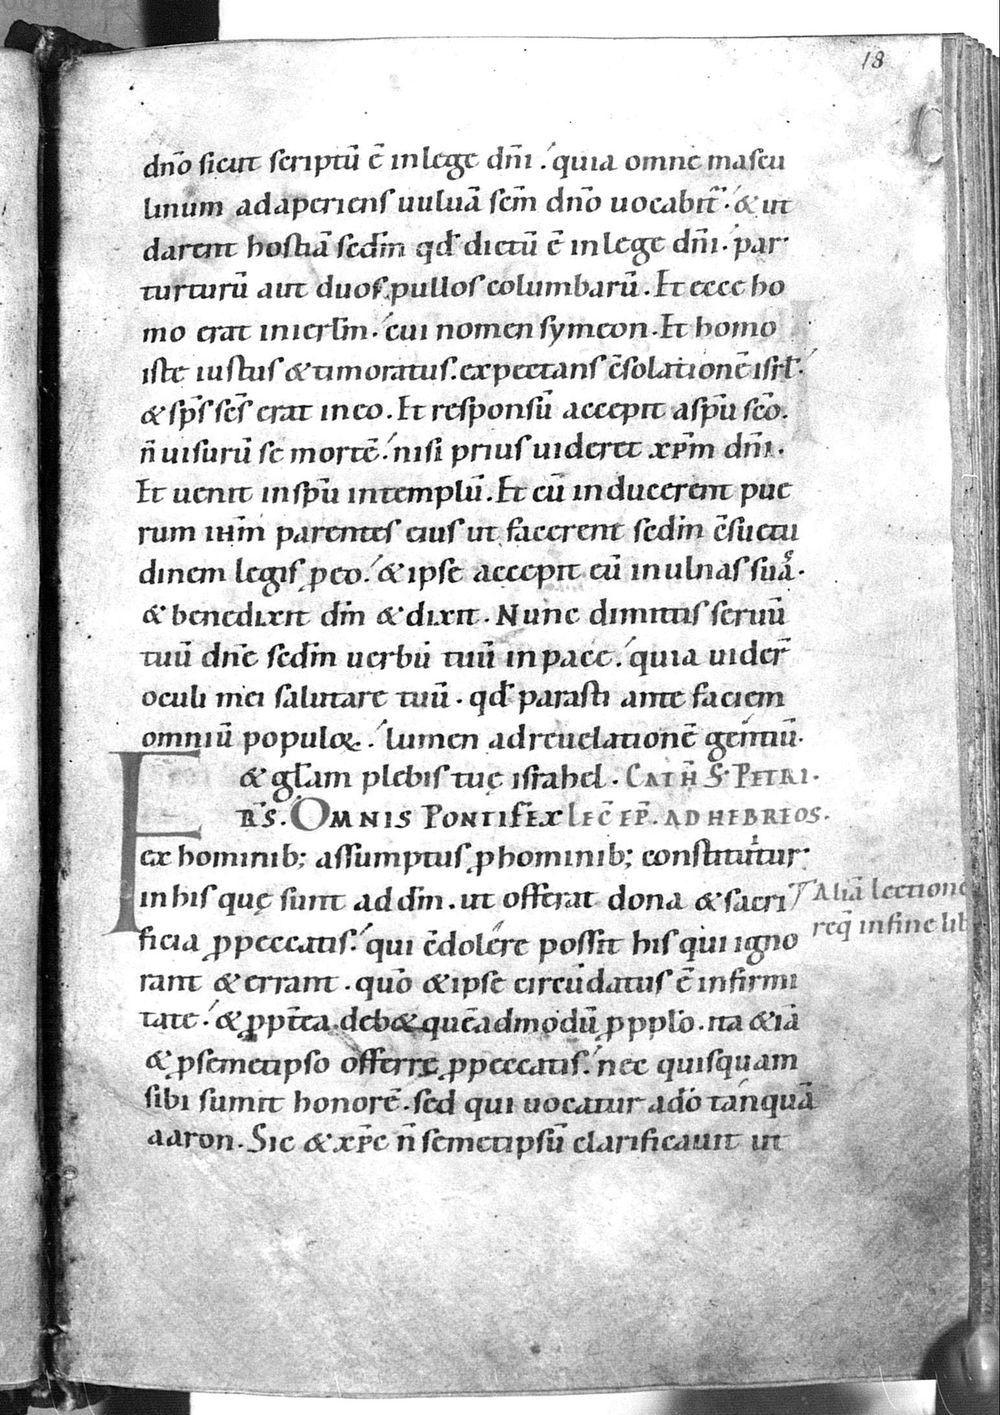 18
dn̄o sicut scriptū ē inlege dn̄i. quia omne mascu
linum adaperiens uuluā scm̄ dn̄o uocabit̄. & ut
darent hostiā sedm̄ qđ dictū ē inlege dn̄i. par
turturū aut duos pullos columbarū. Et ecce ho
mo erat inierlm̄. cui nomen symeon. Et homo
iste iustus & timoratus. expectans c̄solationē isrł.
& sp̄s sc̄s erat ineo. Et responsū accepit asp̄u sc̄o.
n̄ uisurū se mortē. nisi prius uideret xp̄m dn̄i.
Et uenit insp̄u intemplū. Et cū inducerent pue
rum ihm̄ parentes eius ut facerent sedm̄ c̄suetu
dinem legis ꝓeo. & ipse accepit eū inulnas suas.
& benedixit dm̄ & dixit. Nunc dimittis seruū
tuū dn̄e sedm̄ uerbū tuū inpace. quia uider̄
oculi mei salutare tuū. qđ parasti ante faciem
omniū populoꝝ. lumen adreuelationē gentiū.
& glām plebis tuę israhel. CATH̄ S. PETRI.
R̄S. OMNIS PONTIFEX LEC̄ EP̄. AD HEBREOS.
E
ex hominib; assumptus ꝓhominib; constituitur
inhis quę sunt ad dm̄. ut offerat dona & sacri
Aliā lectionē
req̄ infine lib
ficia ꝓpeccatis. qui c̄dolere possit his qui igno
rant & errant. quō & ipse circūdatus ē infirmi
tate. & ꝓpt̄ea deb& quēadmodū ꝓpplō. ita & iā
& ꝓsemetipso offerre ꝓpeccatis. nec quisquam
sibi sumit honorē. sed qui uocatur adō tanquā
aaron. Sic & xp̄c n̄ semetipsū clarificauit ut